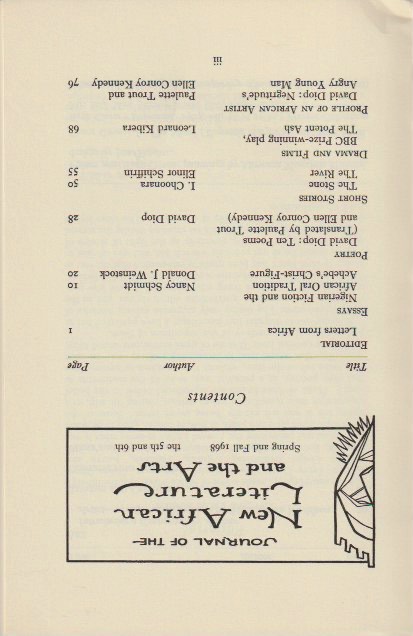 JOURNAL OF THE
New African
Literature
and the Arts
Spring and Fall 1968 the 5th and 6th
Contents
Title Author Page
EDITORIAL
Letters from Africa 1
ESSAYS
Nigerian Fiction and the
African Oral Tradition Nancy Schmidt 10
Achebe's Christ-Figure Donald J. Weinstock 20
POETRY
David Diop: Ten Poems
(Translated by Paulette Trout
and Ellen Conroy Kennedy) David Diop 28
SHORT STORIES
The Stone I. Choonara 50
The River Elinor Schiffrin 55
DRAMA AND FILMS
BBC Prize-winning play,
The Potent Ash Leonard Kibera 68
PROFILE OF AN AFRICAN ARTIST
David Diop: Negritude's Paulette Trout and
Angry Young Man Ellen Conroy Kennedy 76
iii